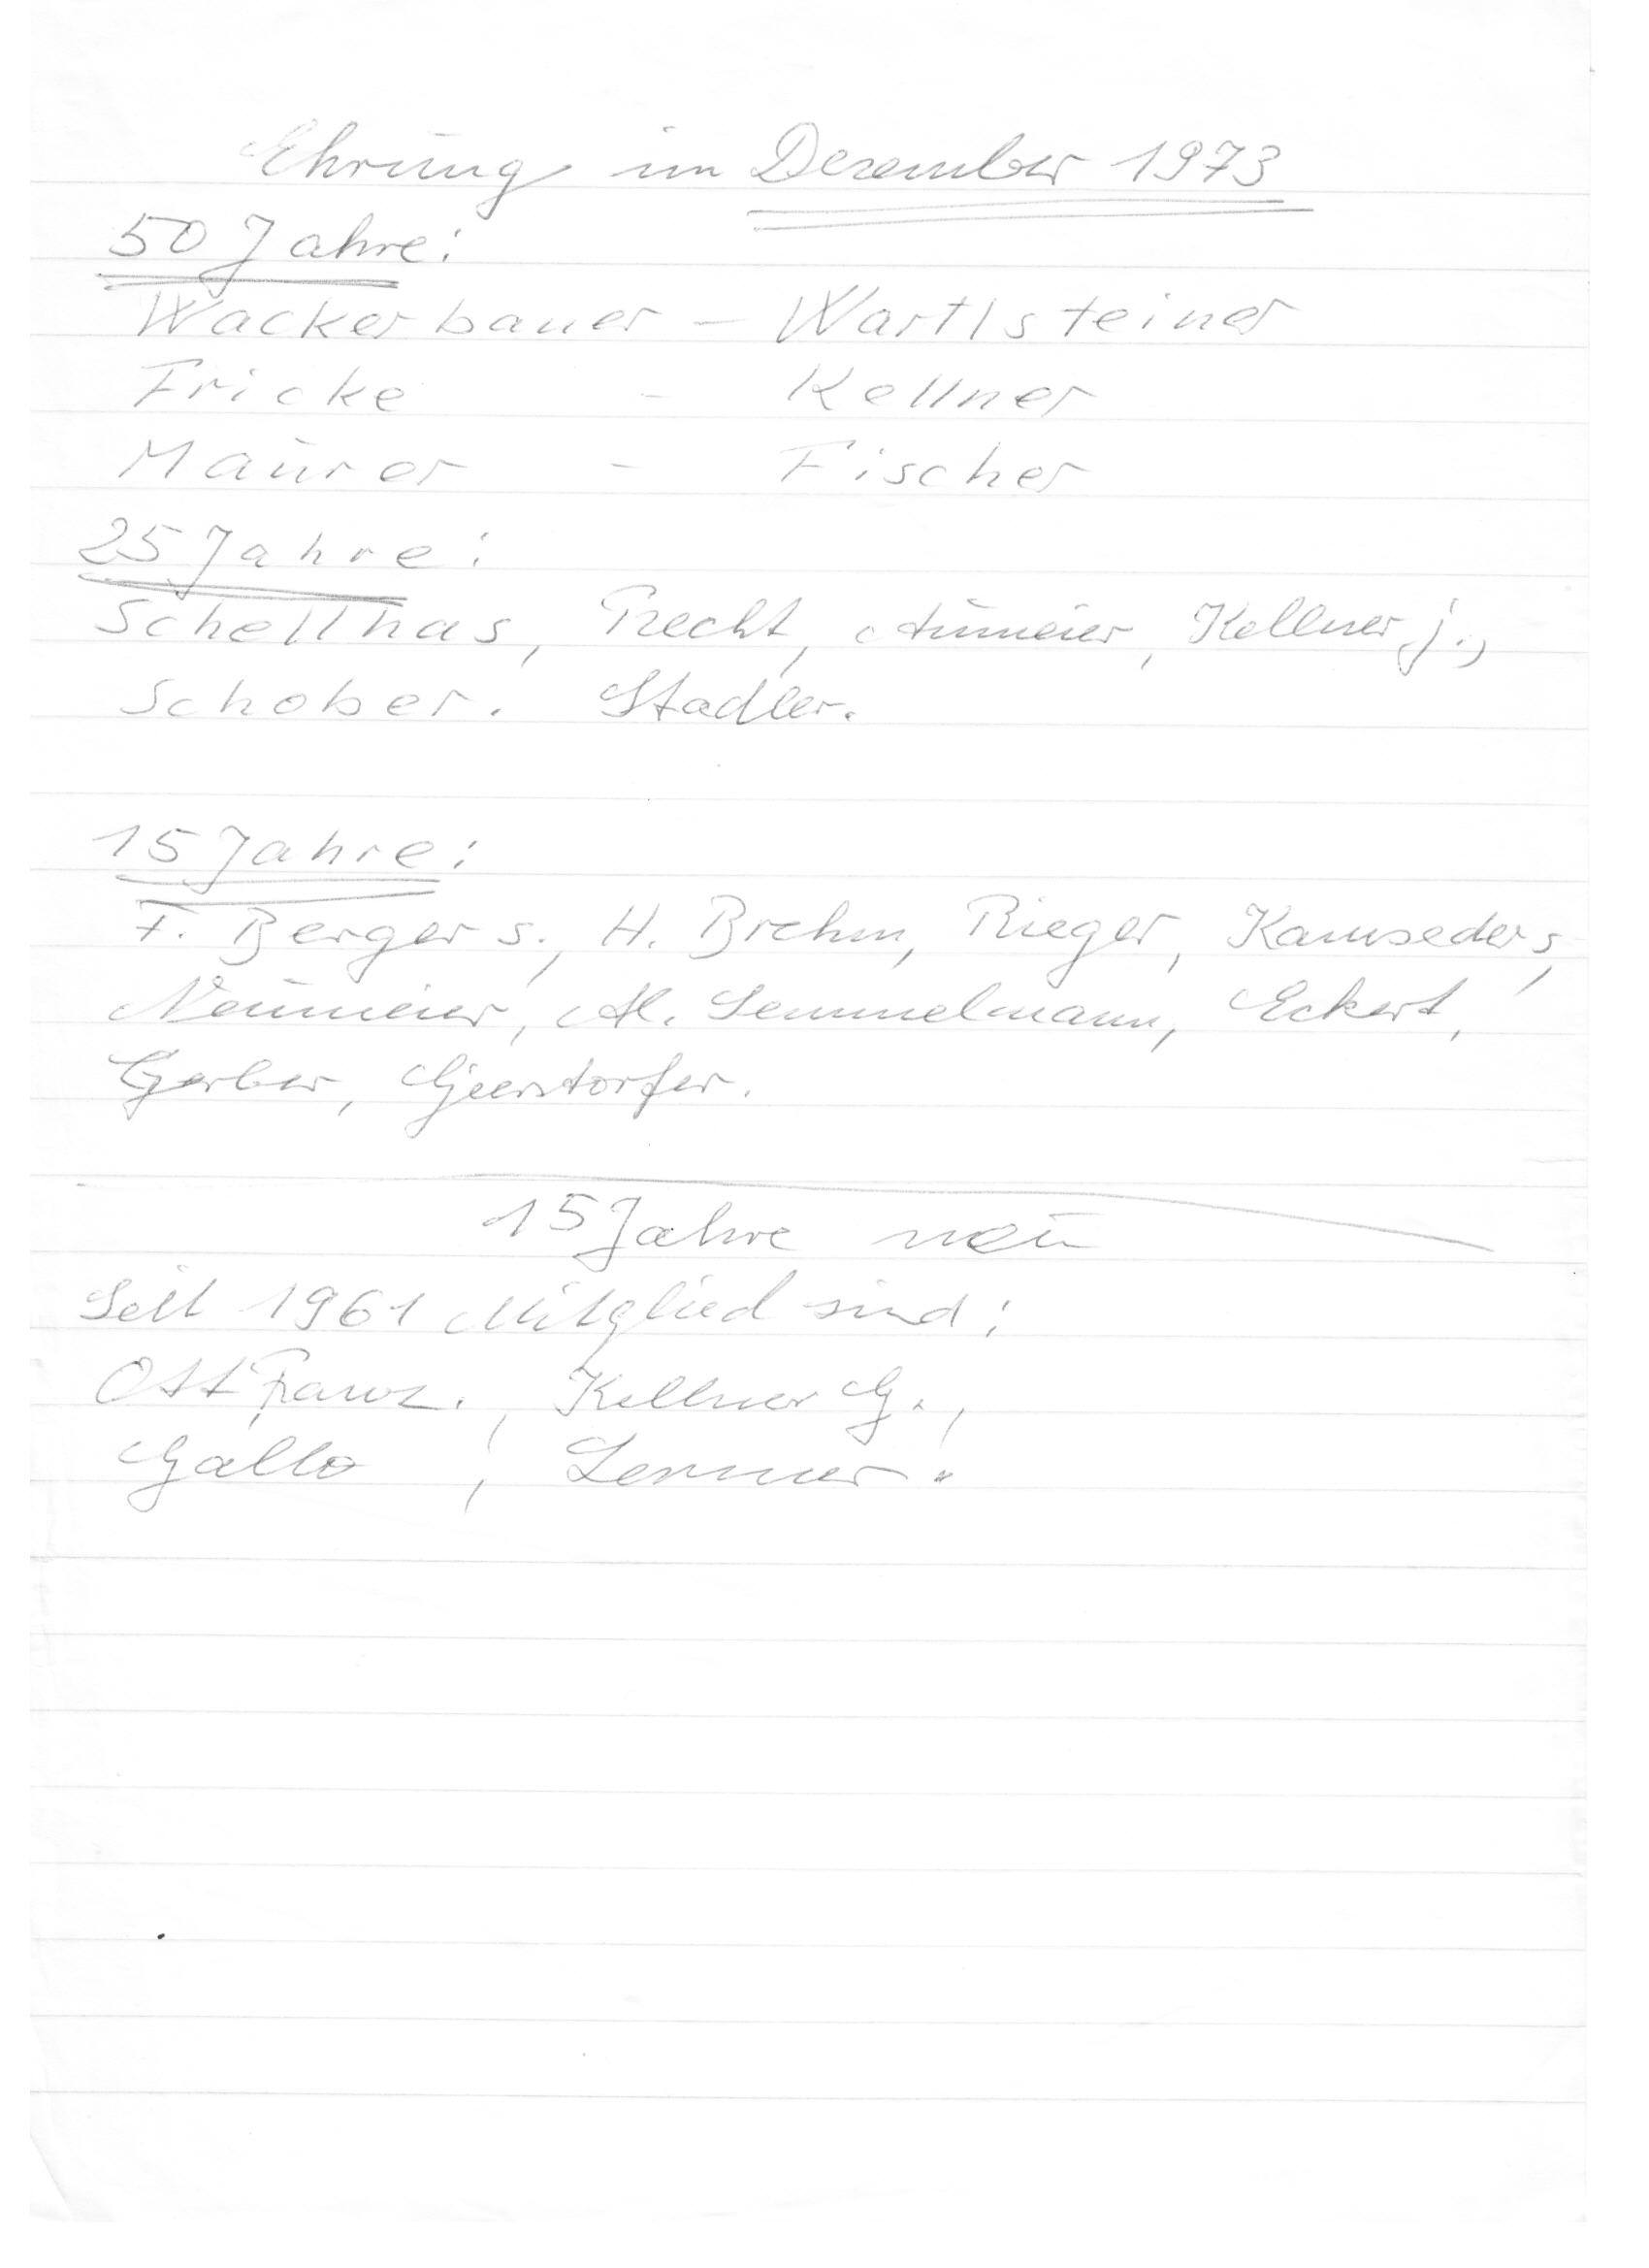 Ehrung im Dezember 1973
50 Jahre:
Wackerbauer - Wartlsteiner
Fricke - Kellner
Maurer - Fischer
25 Jahre:
Schellhas, Precht, Aumeier, Kellner j.,
Schober. Stadler.
15 Jahre:
F. Berger s., H. Brehm, Rieger, Kamseder s,
Neumeier, M. Semmelmann, Eckert,
Gerber,
15 Jahre neu
Seit 1961 Mitglied sind:
Ott Franz., Kellner G.,
Gallo,